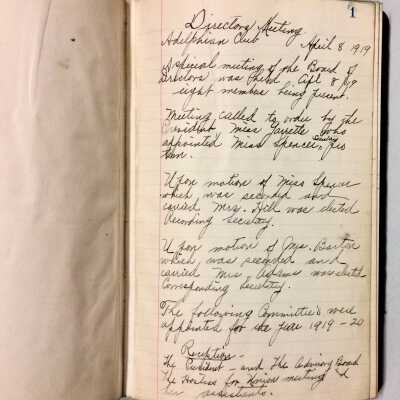 1
Directors Meeting
Adelphian Club April 8 1919
A special meeting of the Board of
Directors was held Apl 8 1919
eight members being present.
Meeting called to order by the
President Miss Jarrette who
appointed Miss Spencer, Secretary pro
tem.
Upon motion of Miss Spencer
which was seconded and
carried Mrs. Hill was elected
Recording Secretary.
Upon motion of Mrs. Barton
which was seconded and
carried Mrs Adams was elected
Corresponding Secretary.
The following Committees were
appointed for the year 1919-20
Reception-
The President - and The Advisory Board
The Hostess for meeting &
her assistants.